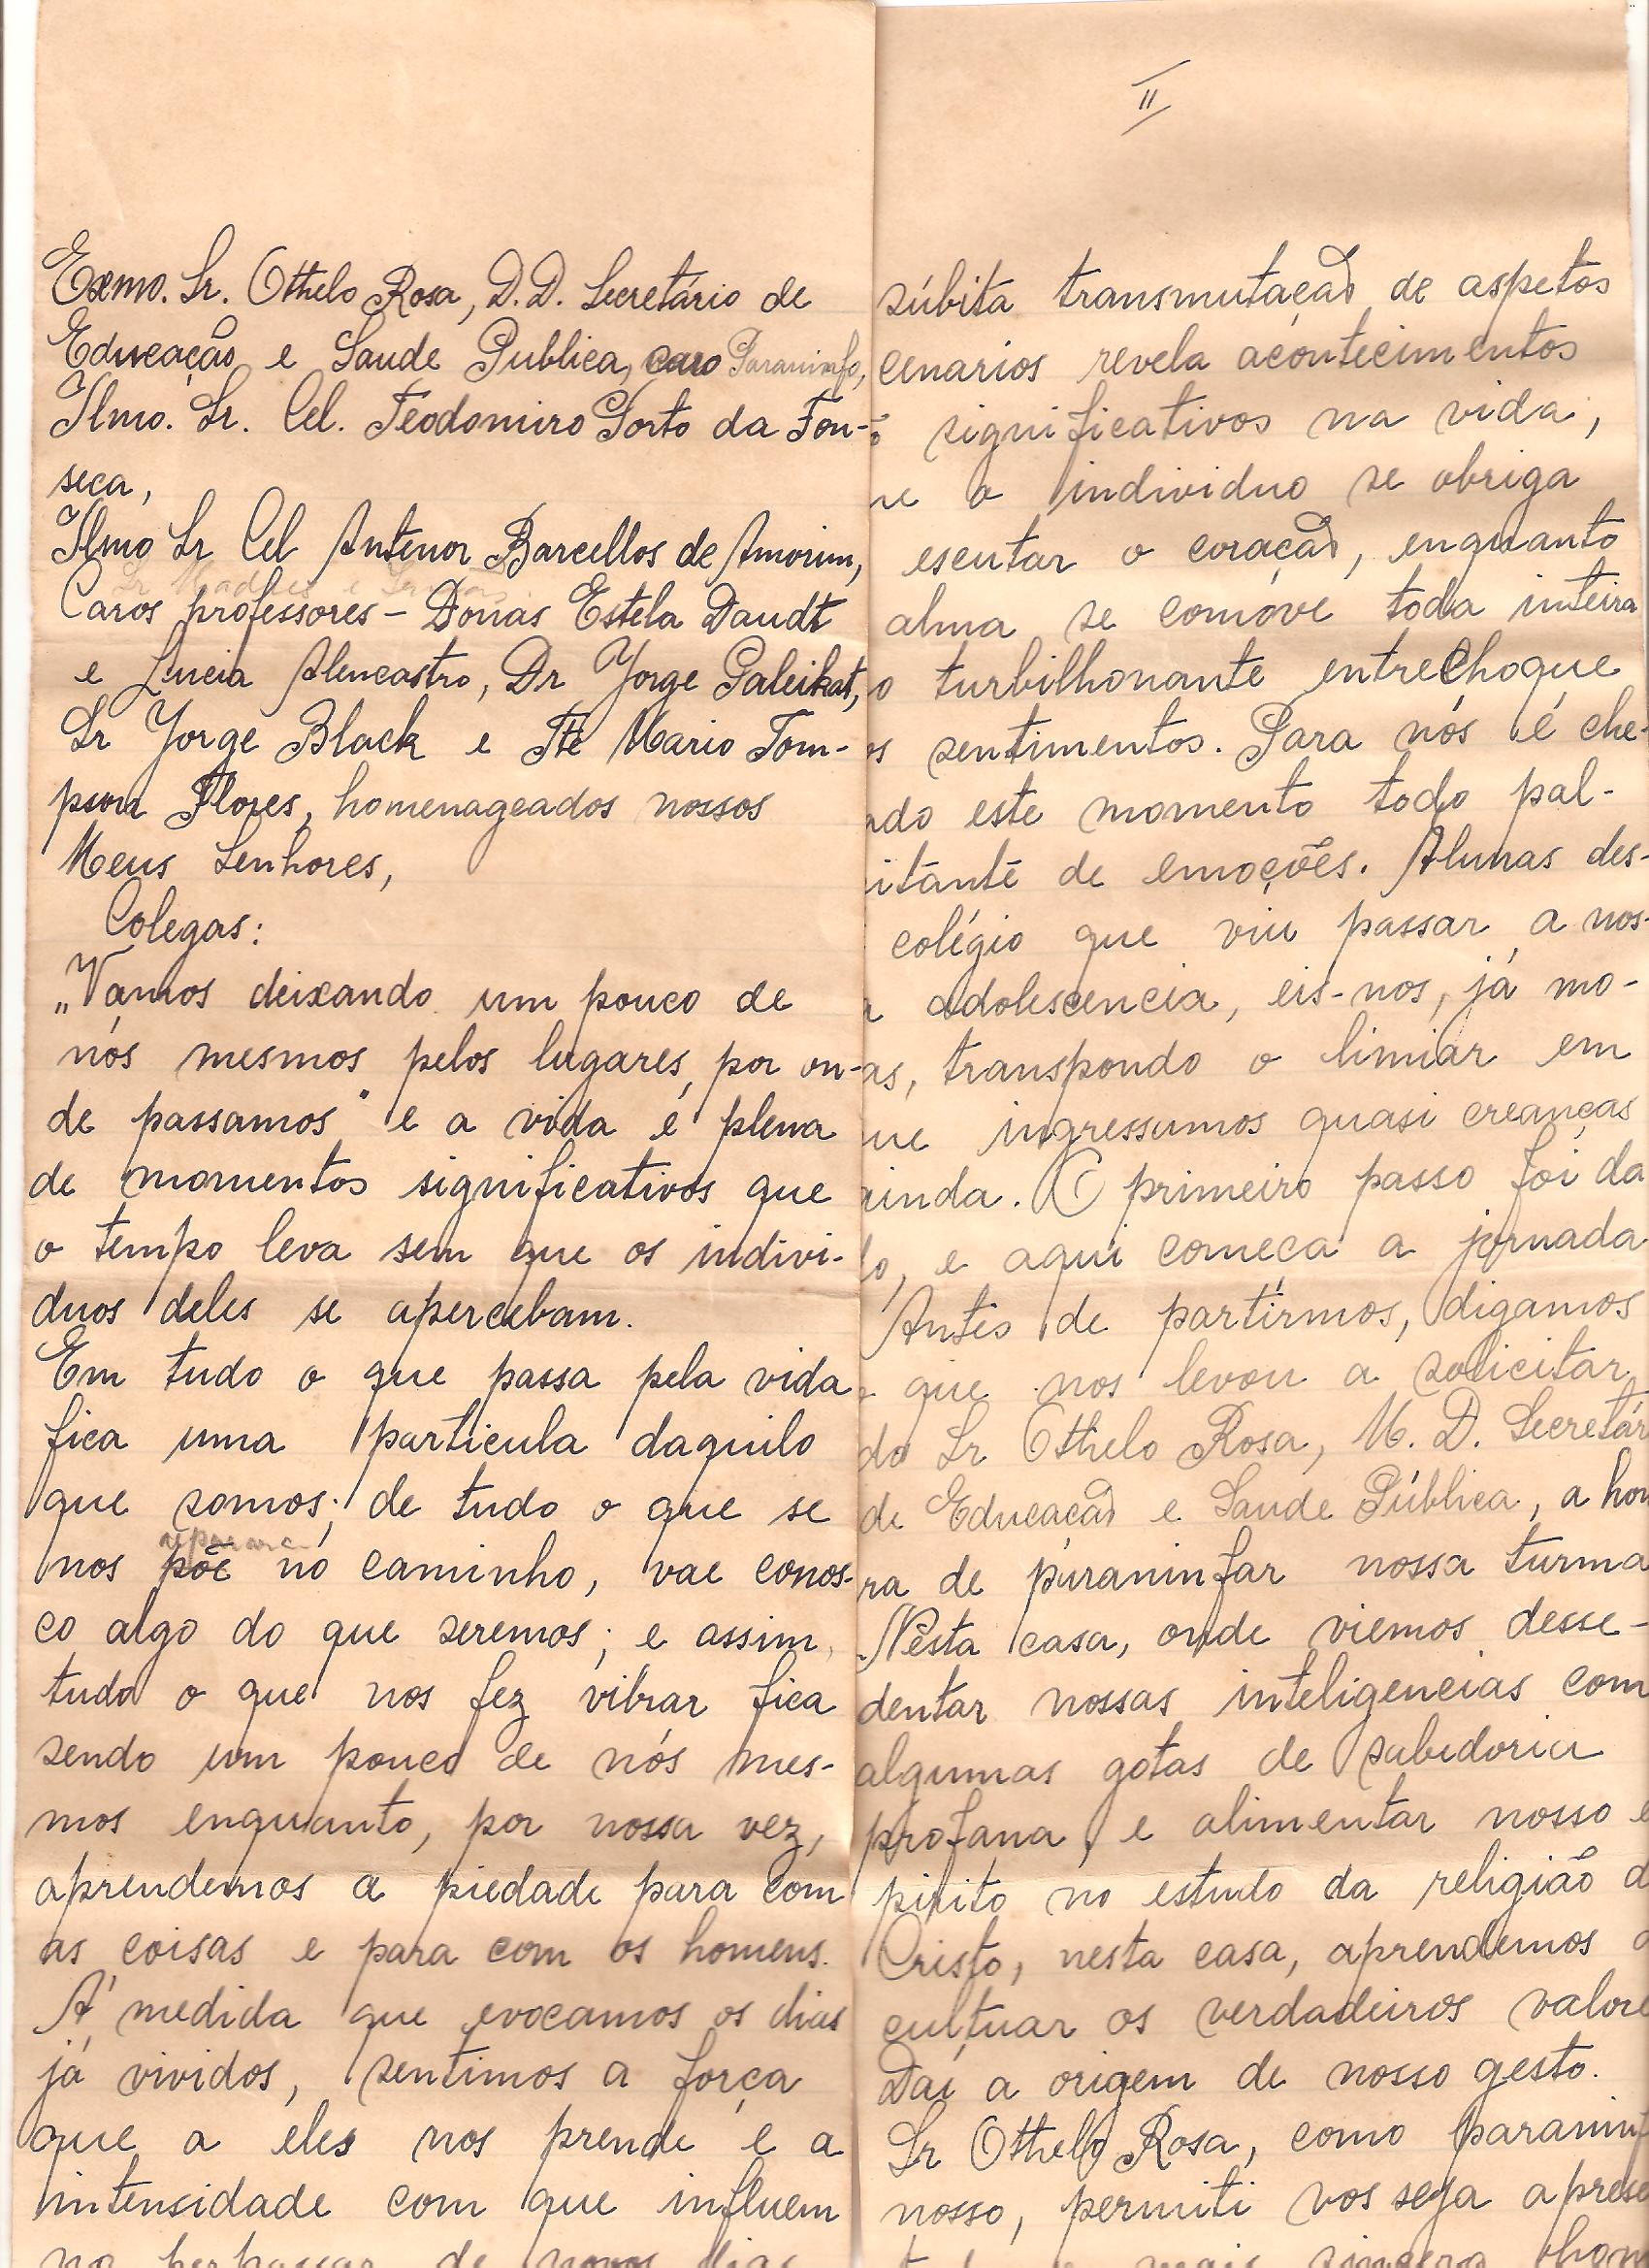 Exmo. Sr. Othelo Rosa, D.D. Secretário de
Educação e Saude Publica, caro Paraninfo,
Ilmo. Sr. Cel. Teodomiro Porto da Fon-
seca,
Ilmo Sr Cel Antenor Barcellos de Amorim,
Caros professores – Donas Estela Daudt
e Lucia Alencastro, Dr Jorge Paleikat,
Sr Jorge Black e Tte Mario Tom-
pson Flores, homenageados nossos
Meus Senhores,
Colegas:
„Vamos deixando um pouco de
nós mesmos pelos lugares, por on-
de passamos" e a vida é plena
de momentos significativos que
o tempo leva sem que os indivi-
duos deles se apercebam.
Em tudo o que passa pela vida
fica uma particula daquilo
que somos; de tudo o que se
nos põe no caminho, vae conos-
co algo do que seremos; e assim
tudo o que nos fez vibrar fica
sendo um pouco de nós mes-
mos enquanto, por nossa vez,
aprendemos a piedade para com
as coisas e para com os homens.
Á medida que evocamos os dias
já vividos, sentimos a força
que a eles nos prende e a
intensidade com que influem
no perpassar de novos dias
II
súbita transmutação de aspetos
cenarios revela acontecimentos
significativos na vida,
ue o individuo se obriga
escutar o coração, enquanto
alma se comóve toda inteira
o turbilhonante entrechoque
os sentimentos. Para nós é che-
ado este momento todo pal-
itante de emoções. Alunas des-
colégio que viu passar a nos-
a adolescencia, eis-nos, já mo-
as, transpondo o limiar em
ue ingressumos quasi creanças
ainda. O primeiro passo foi da
do, e aqui começa a jornada
Antes de partirmos, digamos
o que nos levou a solicitar
do Sr Othelo Rosa, M. D. Secretár
de Educação e Saude Pública, a hon
ra de paraninfar nossa turma
Nesta casa, onde viemos desse-
dentar nossas inteligencias com
algumas gotas de sabedoria
profana, e alimentar nosso e
pirito no estudo da religião d
Cristo, nesta casa, aprendemos a
cultuar os verdadeiros valore
Daí a origem de nosso gesto.
Sr Othelo Rosa, como paranin
nosso, permiti vos seja aprese
mais sincera hom